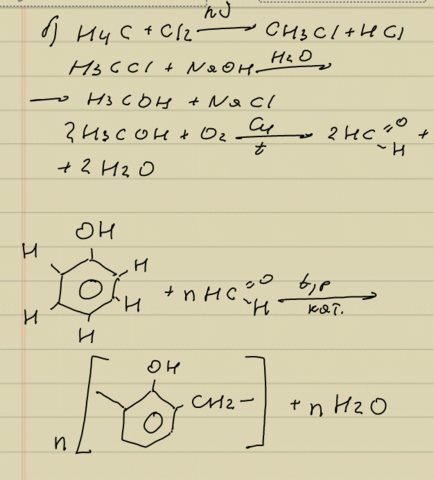 б) H4C + Cl2 hν → CH3Cl + HCl
H3CCl + NaOH H2O →
→ H3COH + NaCl
2H3COH + O2 Cu t → 2HC =O -H +
+ 2H2O
OH
H H
+ n HC =O -H t,p кат. →
H H
H
OH
n [ CH2- ] + n H2O